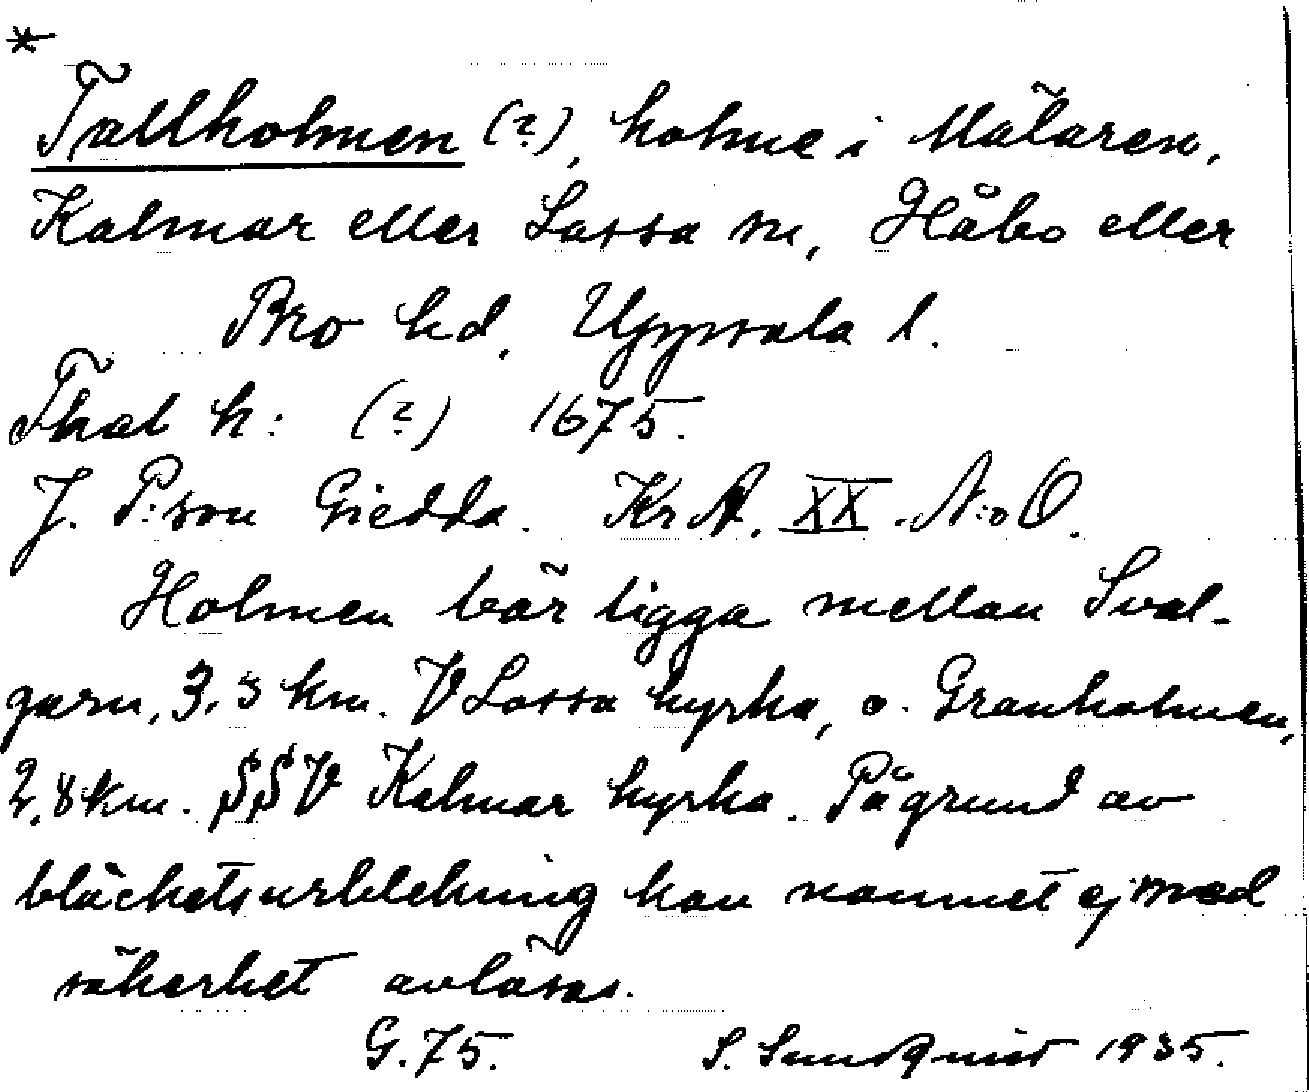 *
Tallholmen (?), holme i Mälaren,
Kalmar eller Lossa sn, Håbo eller
Bro hd, Uppsala l.
Thal h: (?) 1675.
J. P:son Giedda. KrA. XX. N:o O.
Holmen bör ligga mellan Sval-
garn, 3,3 km. V Lossa kyrka, o. Granholmen,
2,8 km. SSV Kalmar kyrka. På grund av
bläckets urblekning kan namnet ej med
säkerhet avläsas.
G. 75. S. Sundquist 1935.